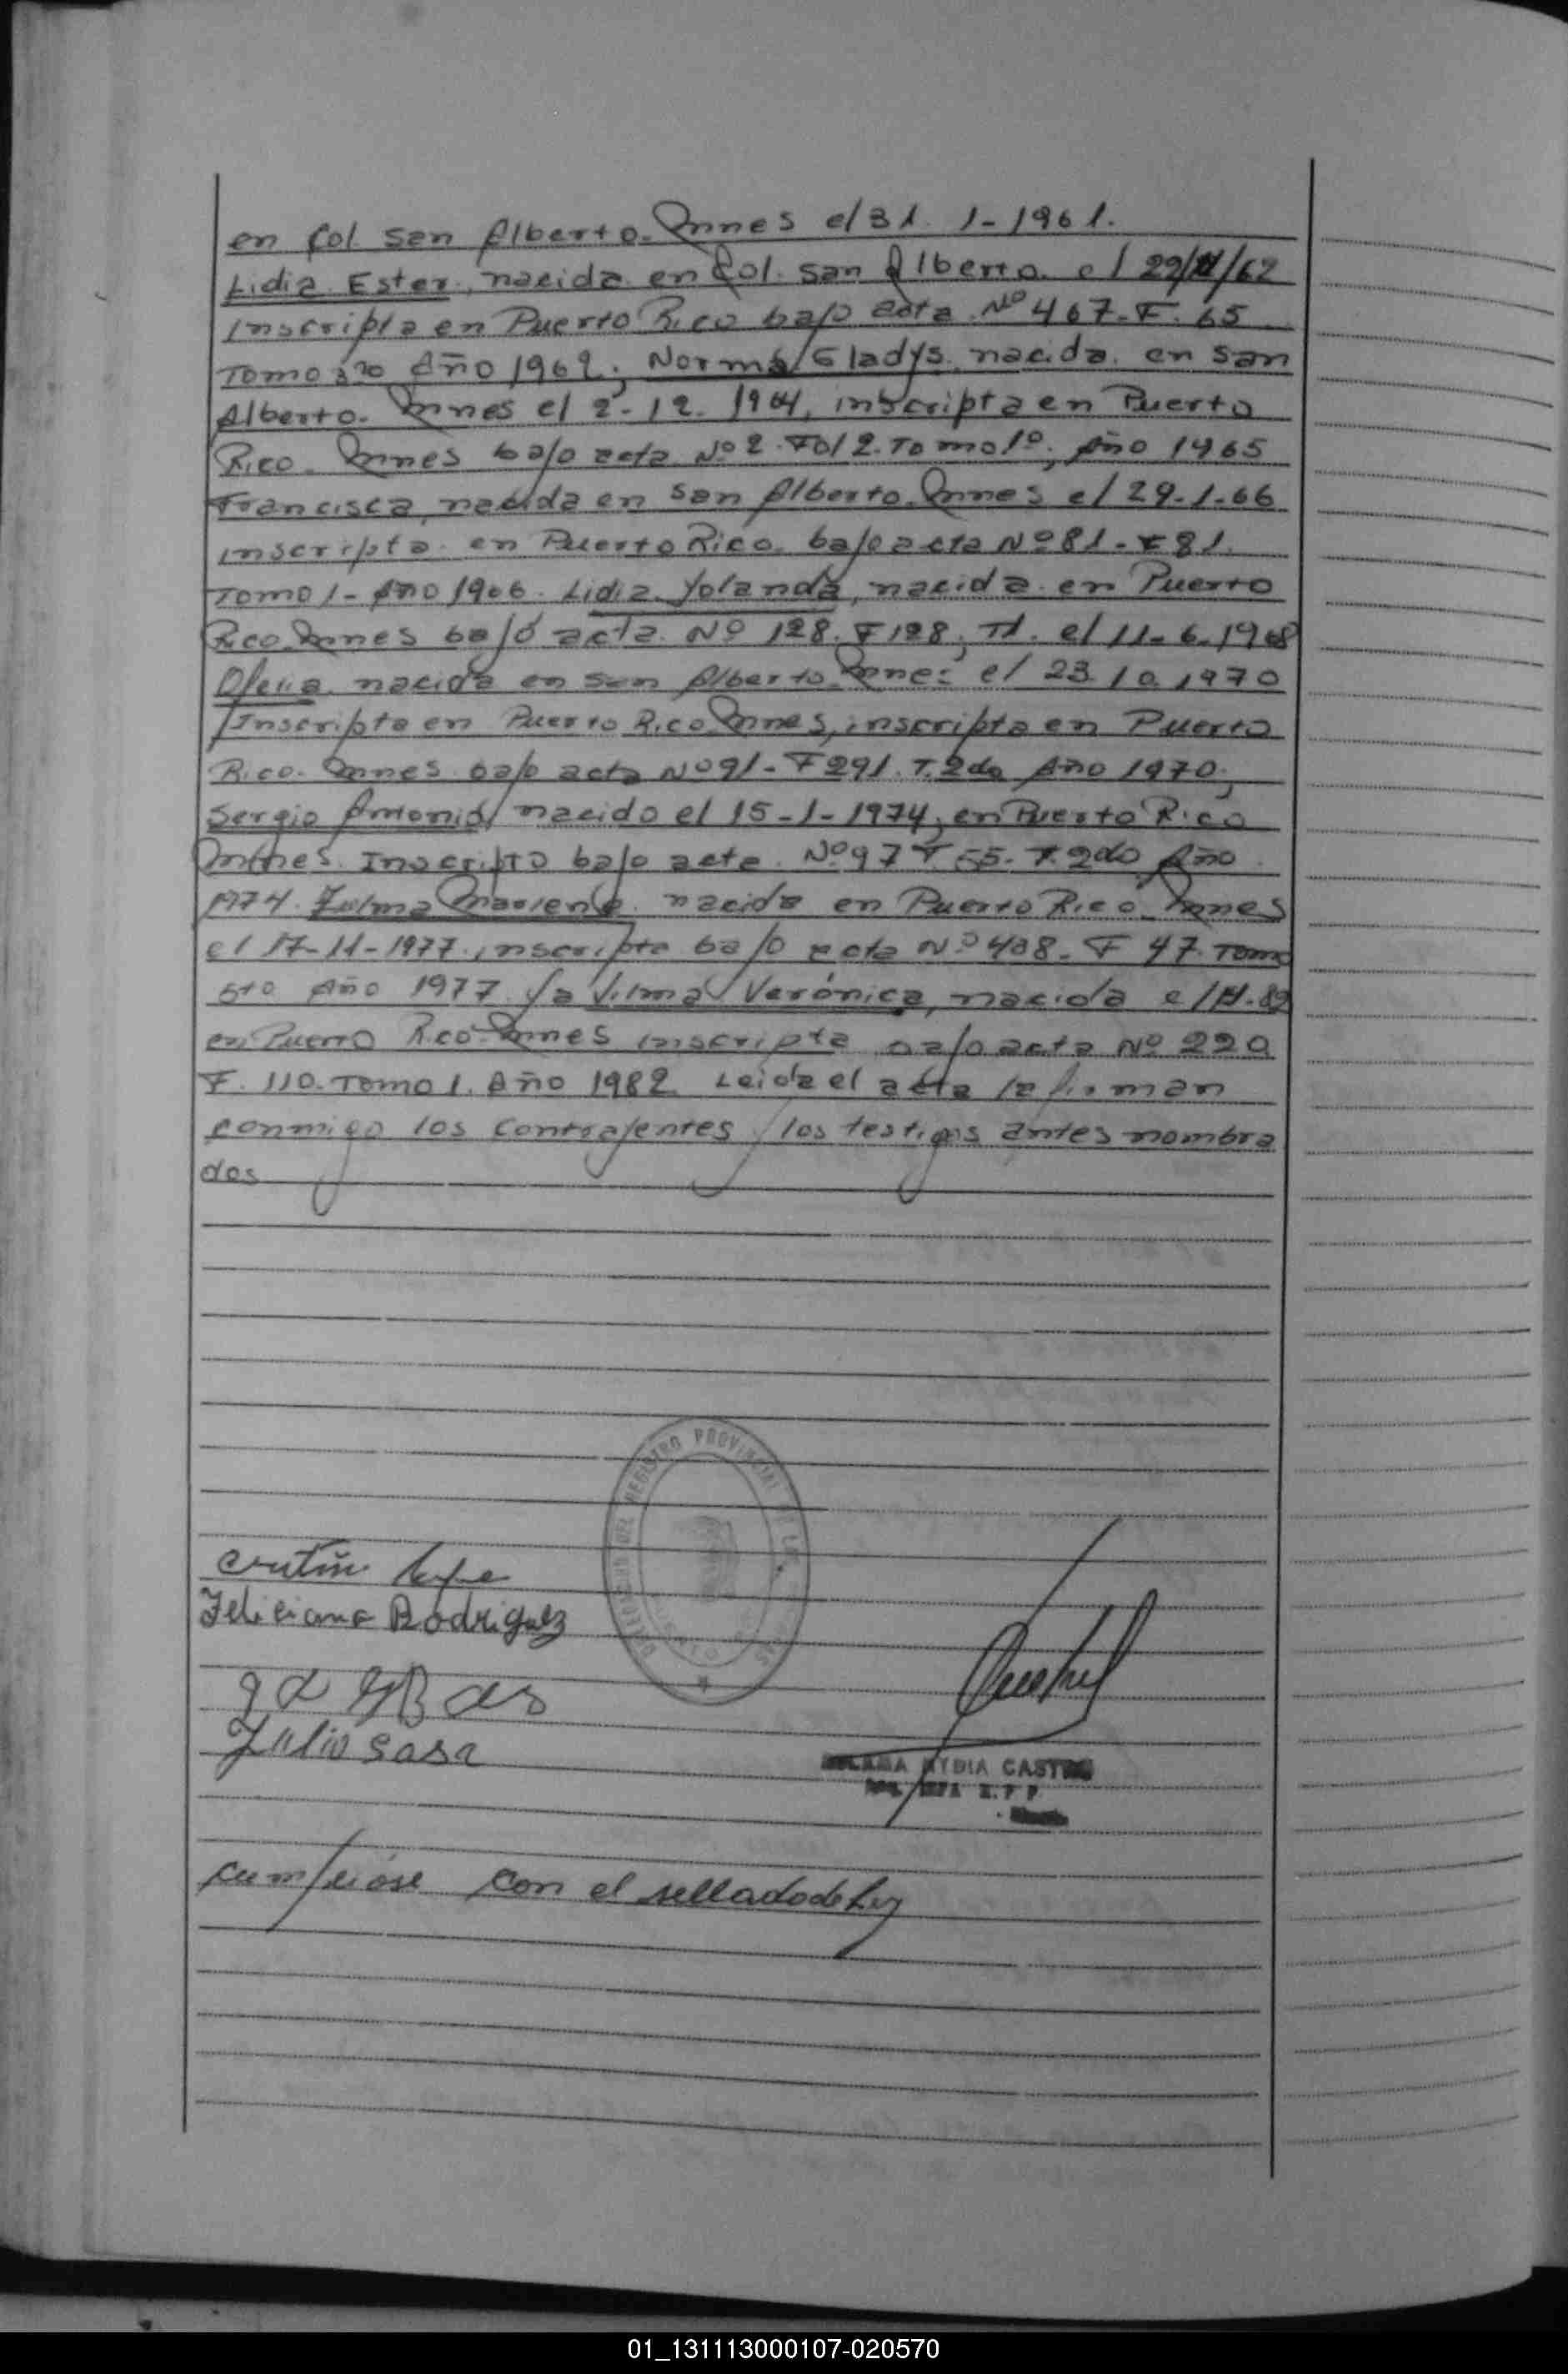 en Col. San Alberto. Mnes el 31. 1-1961.
Lidia Ester, nacida en Col. San Alberto el 29/ /62
Inscripta en Puerto Rico bajo acta Nº 467-F. 65
Tomo 3ro Año 1962; Norma Gladys nacida en San
Alberto. Mnes el 2-12. 1964, inscripta en Puerto
Rico. Mnes bajo acta Nº 2. Fol 2. Tomo 1º; Año 1965
Francisca, nacida en San Alberto. Mnes el 29-1-66
inscripta en Puerto Rico bajo acta Nº 81-F 81.
Tomo 1- Año 1966. Lidia Yolanda, nacida en Puerto
Rico. Mnes bajo acta Nº 128. F 128, T1. el 11-6-1968
Ofelia nacida en San Alberto. Mnes el 23.10.1970
Inscripta en Puerto Rico Mnes, inscripta en Puerto
Rico. Mnes bajo acta Nº 91-F 291. T. 2do Año 1970;
Sergio Antonio, nacido el 15-1-1974, en Puerto Rico
Mnes. Inscripto bajo acta Nº 97 F 55-T. 2do Año
1974. Zulma Marlene nacida en Puerto Rico Mnes
el 17-11-1977. inscripta bajo acta Nº 408-F 47. Tomo
5to Año 1977 ya Vilma Verónica, nacida el
en Puerto Rico-Mnes inscripta bajo acta Nº 220
F. 110. Tomo 1. Año 1982. Leida el acta la firman
conmigo los contrajentes y los testigos antes nombra
dos
REGISTRO PROVINCIAL DE LAS
Feliciana Rodriguez
Julio Sosa
NYDIA CASTRO
R.P.P.
cumpliose con el sellado de Ley
01_131113000107-020570